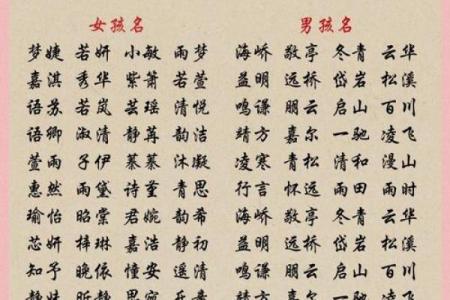 女孩名 男孩名
梦婕 若妍 小敏 雨梦 海峤 敬亭 冬青 云华
嘉淇 秀华 紫萧 若萱 益明 远桥 岱岩 松溪
语苏 若岚 芸瑶 清悦 鸣谦 朋云 启山 百川
语卿 淑清 静苒 韵洁 靖方 嘉尔 一驰 凌飞
萱雨 子伊 慕慕 沐凝 凌寒 青松 清和 漫山
惠然 雨黛 诗堇 青思 行言 怀远 雨田 雨时
瑜怡 昭棠 君婉 韵希 海峤 敬亭 冬青 云华
芯妍 梓琳 嘉洁 静初 益明 远桥 岱岩 松溪
知予 晚依 憧安 遥清 鸣谦 朋云 启山 百川
静 思 雨 靖方 嘉尔 一驰 凌飞